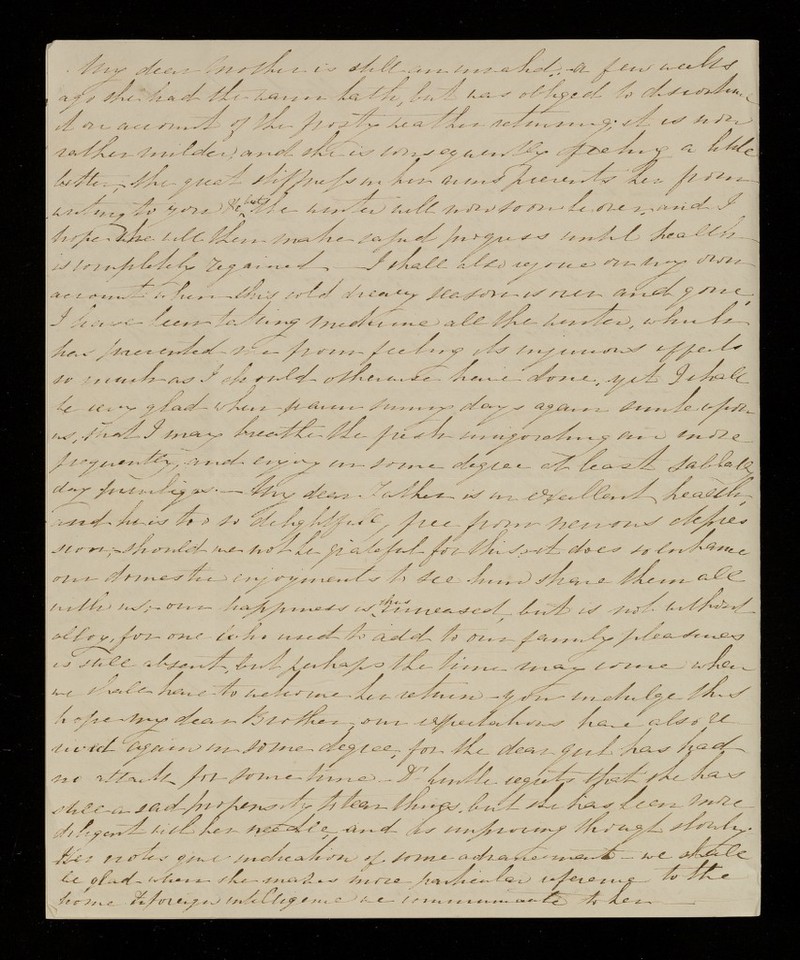 My dear Mother is still an invalid, a few weeks
ago she had the warm bath, but was obliged to discontinue
it on account of the frosty weather returning, it is now
rather milder, and she is consequently feeling a little
better, the great stiffness in her arms prevents her from
writing to you but the winter will now soon be over, and I
hope she will then make rapid progress until health
is completely regained. I shall also rejoice on my own
account when this cold dreary season is over and gone,
I have been taking medicine all the winter, which
has prevented me from feeling its injurious effects
so much as I should otherwise have done, yet I shall
be very glad when warm sunny days again smile upon
us, that I may breathe the fresh invigorating air more
frequently, and enjoy in some degree at least Sabbath
day privileges. - My dear Father is in excellent health,
and he is too so delightfully free from nervous depres
sion, should we not be grateful for this, it does so enhance
our domestic enjoyments to see him share them all
with us; our happiness is thus increased, but is not without
alloy, for one who used to add to our family pleasures
is still absent, but perhaps the time may come when
we shall have to welcome her return - you indulge this
hope my dear Brother, our expectations have also re
vived again in some degree, for the dear girl has had
no attack for some time - Dr regrets that she has
still a sad propensity to tear things, but she has been more
diligent with her needle and is improving though slowly.
Her notes give indication of some advancement - we shall
be glad when she makes more particular reference to the
home & foreign intelligence we communicate to her